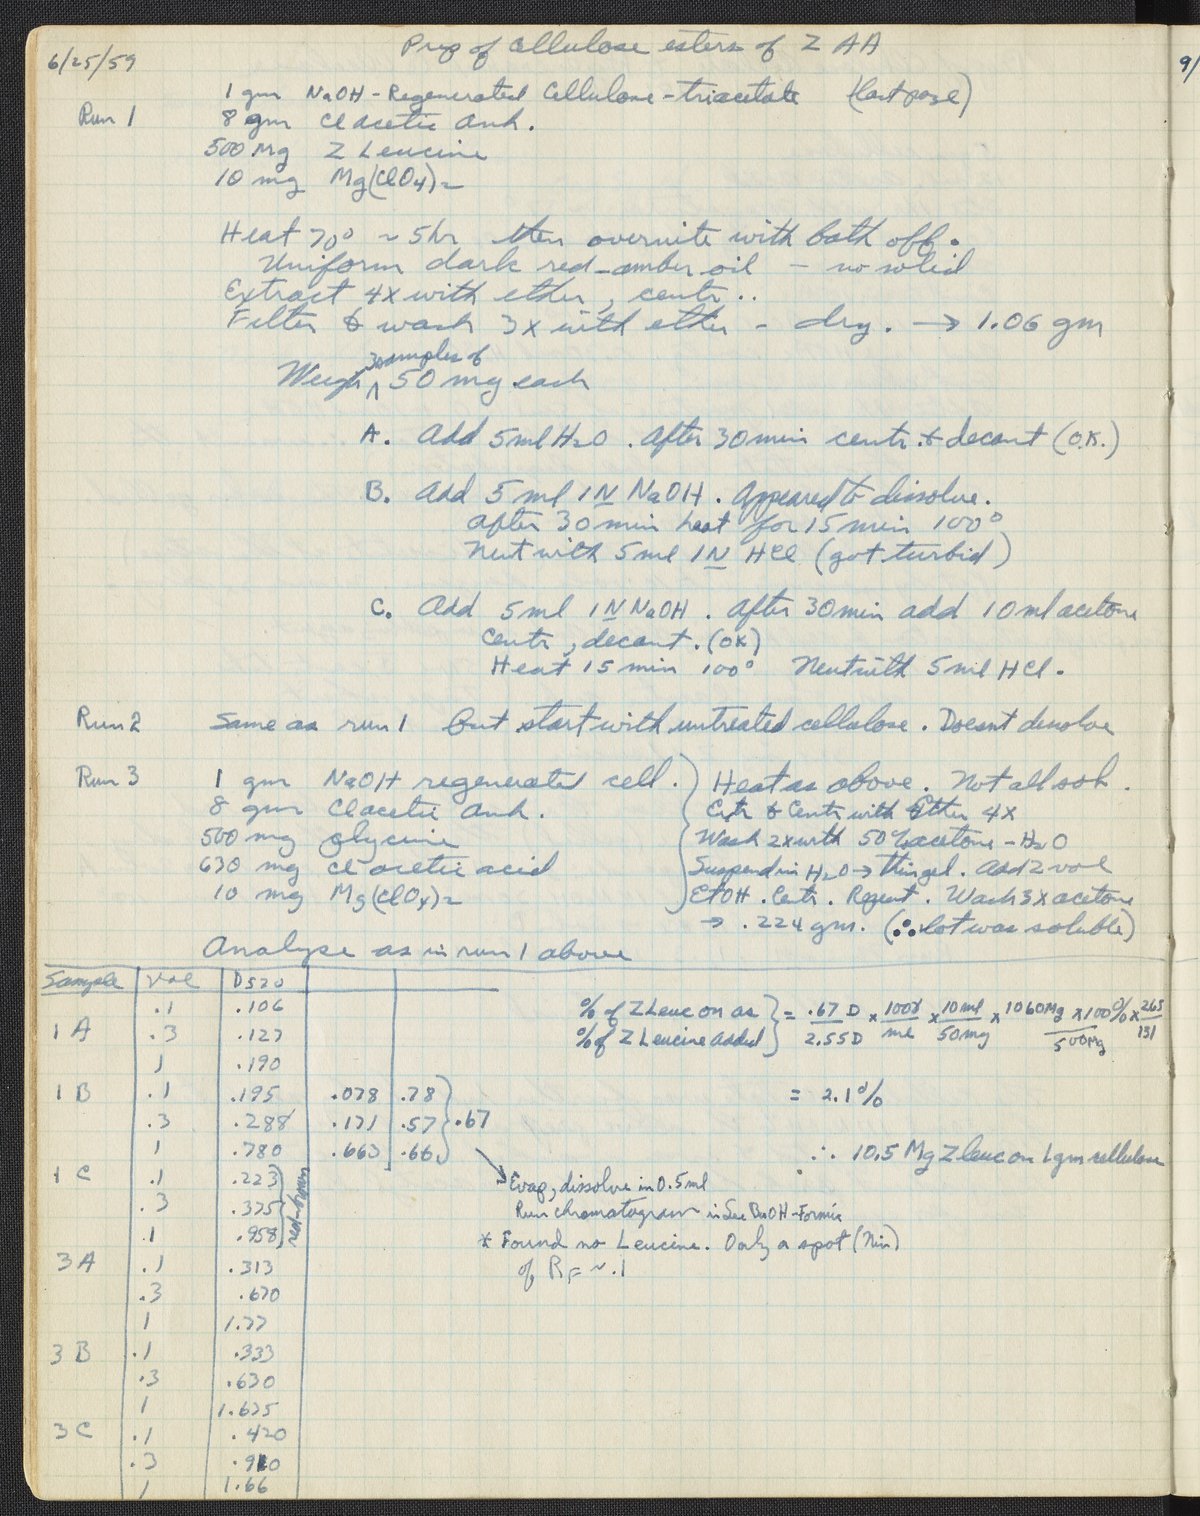 6/25/59
Prep of cellulose esters of Z AA
9/
1 gm NaOH-Regenerated Cellulose-triacetate (last page)
Run 1 8 gm Cl acetic anh.
500 mg Z Leucine
10 mg Mg(ClO4)2
Heat 70° ~ 5hr then overnite with bath off.
Uniform dark red-amber oil - no solid
Extract 4x with ether, centr..
Filter & wash 3x with ether - dry. → 1.06 gm
Weigh 3 samples of 50 mg each
A. Add 5 ml H2O. After 30 min centr. & decant (O.K.)
B. Add 5 ml 1N NaOH. Appeared to dissolve.
After 30 min heat for 15 min 100°
Neut with 5 ml 1N HCl (got turbid)
C. Add 5 ml 1N NaOH. After 30 min add 10 ml acetone
Centr, decant. (OK)
Heat 15 min 100° Neut with 5 ml HCl.
Run 2 Same as run 1 but start with untreated cellulose. Doesnt desolve
Run 3 1 gm NaOH regenerated cell.
8 gm Cl acetic anh.
500 mg glycine
630 mg cl acetic acid
10 mg Mg(ClO4)2
Heat as above. Not all sol.
& Centr with Ether 4x
Wash 2x with 50% acetone-H2O
Suspend in H2O → thin gel. Add 2 vol
EtOH. Centr. Repeat. Wash 3x acetone
→ .224 gm. (∴ lot was soluble)
Analyze as in run 1 above
Sample Vol D520
1 A .1 .106
.3 .127
1 .190
1 B .1 .195 .078 .78
.3 .288 .171 .57 .67
1 .780 .663 .66
1 C .1 .223
.3 .375
.1 .958
3 A .1 .313
.3 .670
1 1.77
3 B .1 .333
.3 .630
1 1.675
3 C .1 .420
.3 .910
1 1.66
% of Z Leuc on as
% of Z Leucine added } = .67 D / 2.55 D x 100γ / ml x 10 ml / 50 mg x 1060 mg / 500 mg x 100% x 265 / 131
= 2.1%
∴ 10.5 Mg Z leuc on 1 gm cellulose
Evap, dissolve in 0.5 ml
Run chromatogram in Sec BuOH-Formic
* Found no Leucine. Only a spot (Nin)
of RF ~ .1